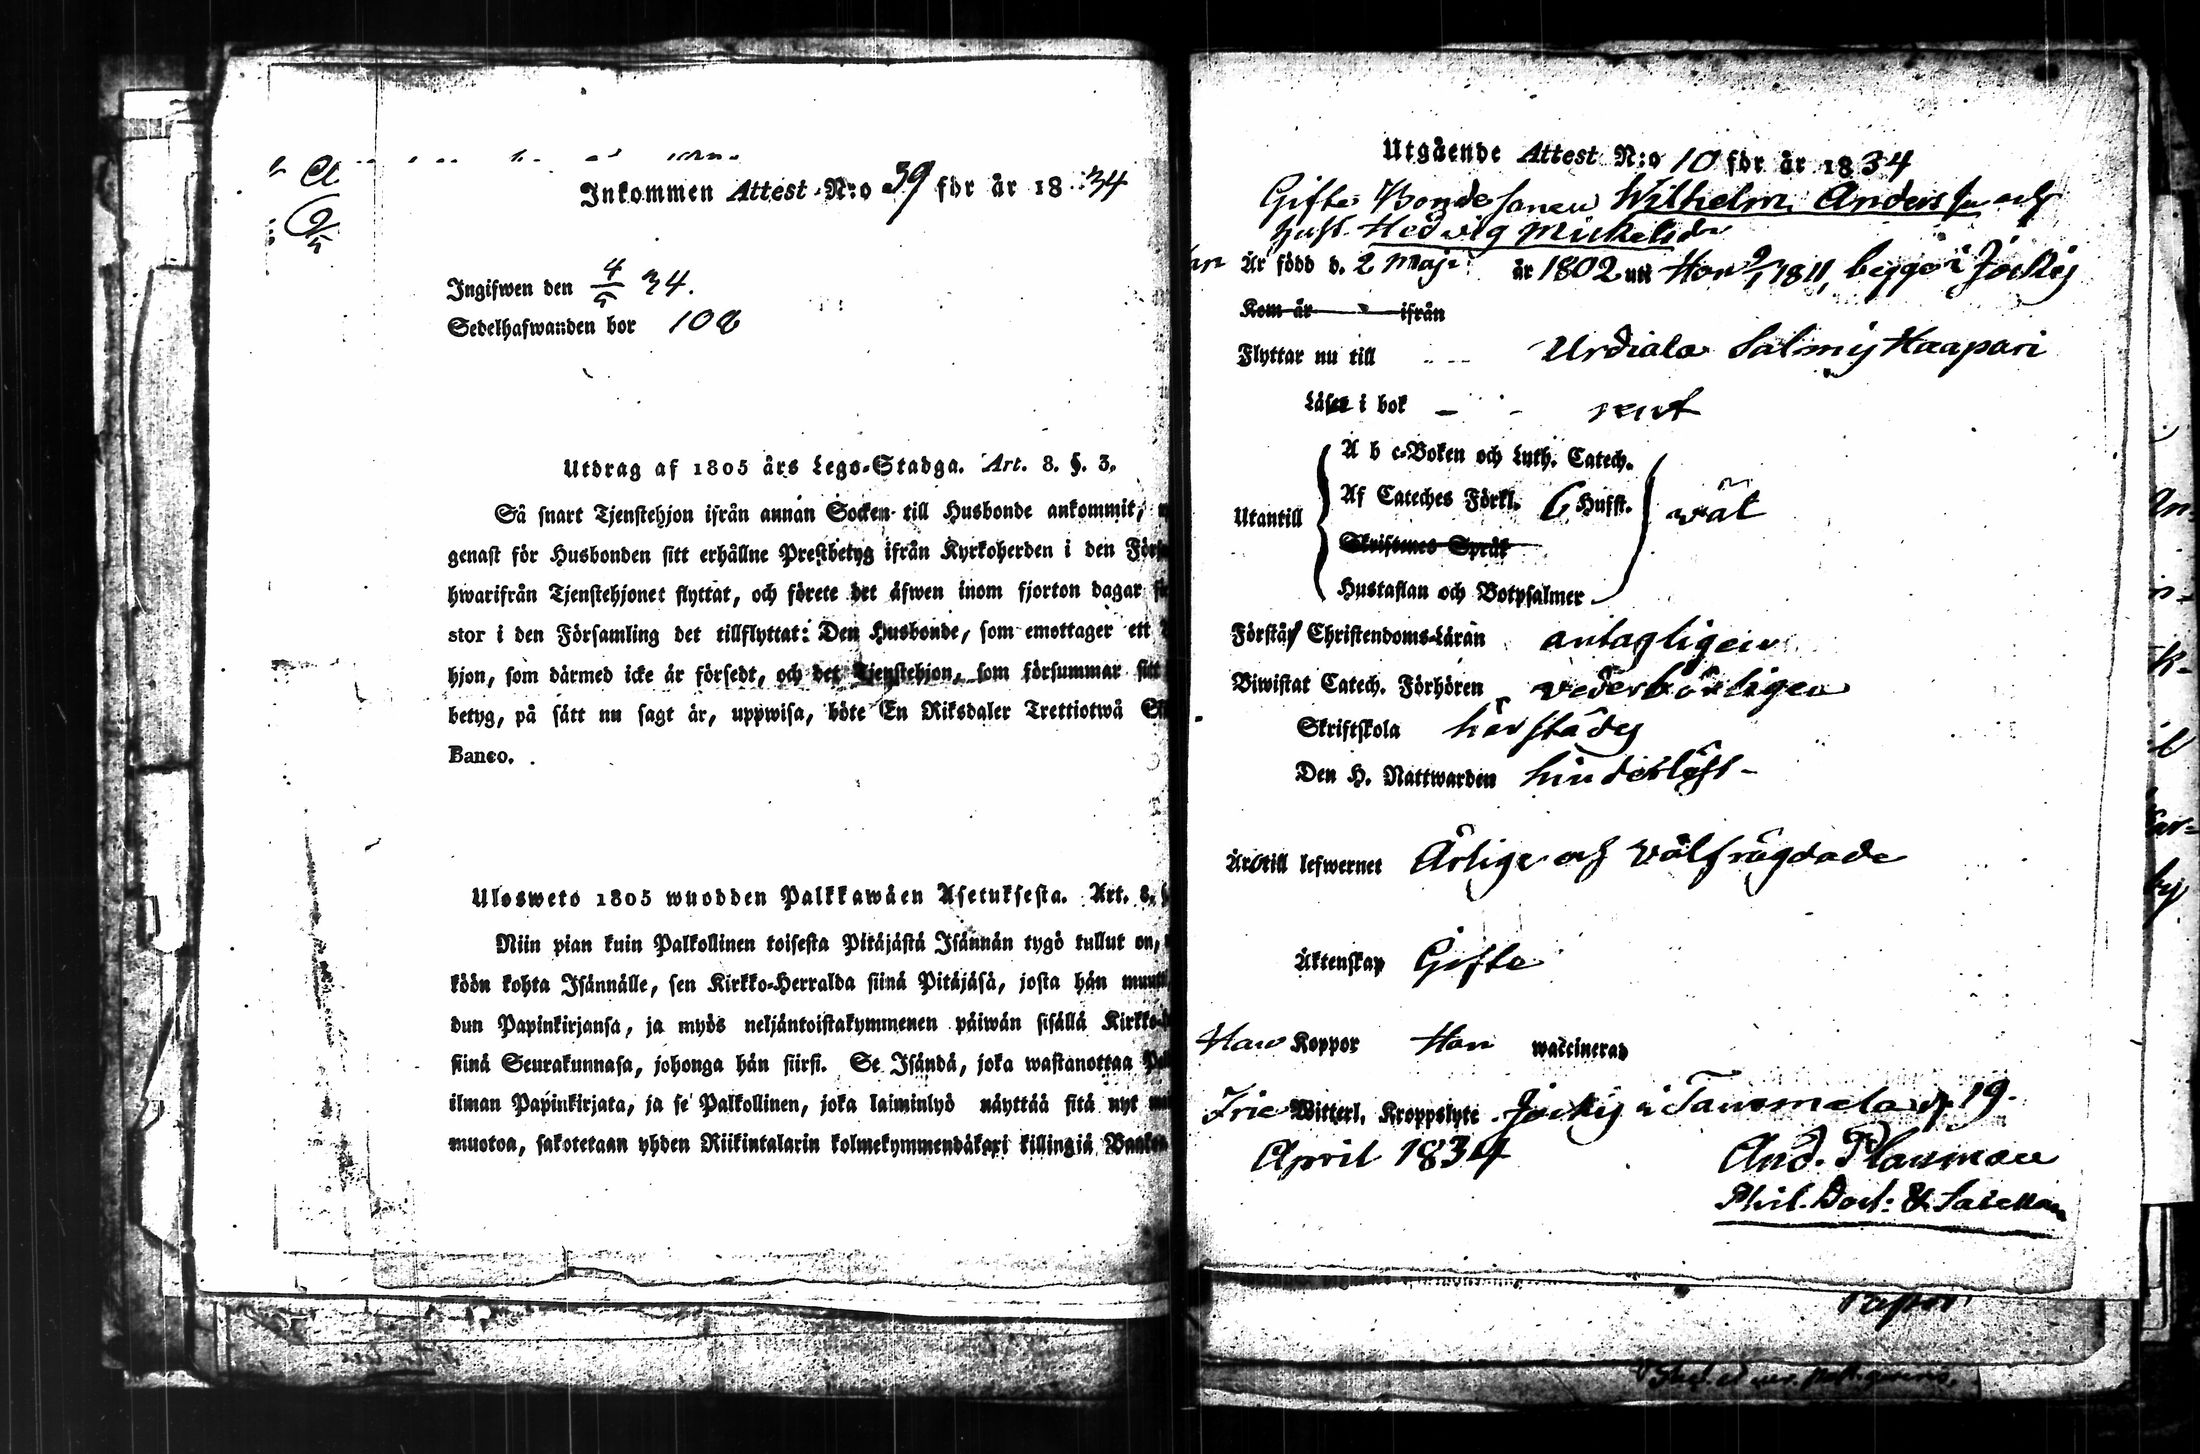 Inkommen Attest N:o 39 för år 1834
Ingifwen den 4/5 34.
Sedelhafwanden bor 102
Utdrag af 1805 års Lego-Stadga. Art. 8. §. 3.
Så snart Tjenstehjon ifrån annan Socken till Husbonde ankommit,
genast för Husbonden sitt erhållne Prestbetyg ifrån Kyrkoherden i den
hwarifrån Tjenstehjonet flyttat, och förete det äfwen inom fjorton dagar
stor i den Församling det tillflyttat: Den Husbonde, som emottager ett
hjon, som därmed icke är försedt, och det Tjenstehjon, som försummar sitt
betyg, på sätt nu sagt är, uppwisa, böte En Riksdaler Trettiotwå
Banco.
Ulosweto 1805 wuodden Palkkawäen Asetuksesta. Art. 8.
Niin pian kuin Palkollinen toisesta Pitäjästä Isännän tygö tullut on,
köön kohta Isännälle, sen Kirkko-Herralda siinä Pitäjäsä, josta hän
dun Papinkirjansa, ja myös neljäntoistakymmenen päiwän sisällä
siinä Seurakunnasa, johonga hän siirsi. Se Isändä, joka wastanottaa
ilman Papinkirjata, ja se Palkollinen, joka laiminlyö näyttää sitä nyt
muotoa, sakotetaan yhden Riikintalarin kolmekymmendäkaxi killingiä
Utgående Attest N:o 10 för år 1834
Gifte Bondesonen Wilhelm Andersson och
hust. Hedvig Mickelsdr
Är född d. 2 Maji år 1802 uti Hon 9/1 1811, begge i Jockis
Kom år ifrån
Flyttar nu till Urdiala Salmis Haapari
Läser i bok rent
A b c-Boken och Luth. Catech.
Utantill Af Cateches Förkl. 6 Hufst. wäl
Skriftenes Språk
Hustaflan och Botpsalmer
Förstå Christendoms-Läran antagligen
Biwistat Catech. Förhören vederbörligen
Skriftskola härstädes
Den H. Nattwarden hinderlöst
Äro till lefwernet Ärlige och Välfrägdade
Äktenskap Gifte
Koppor Hon waccinerad
Frie Witterl. Kroppslyte Jockis i Tammela d. 19.
April 1834 And. Planman
Phil. Doct. &